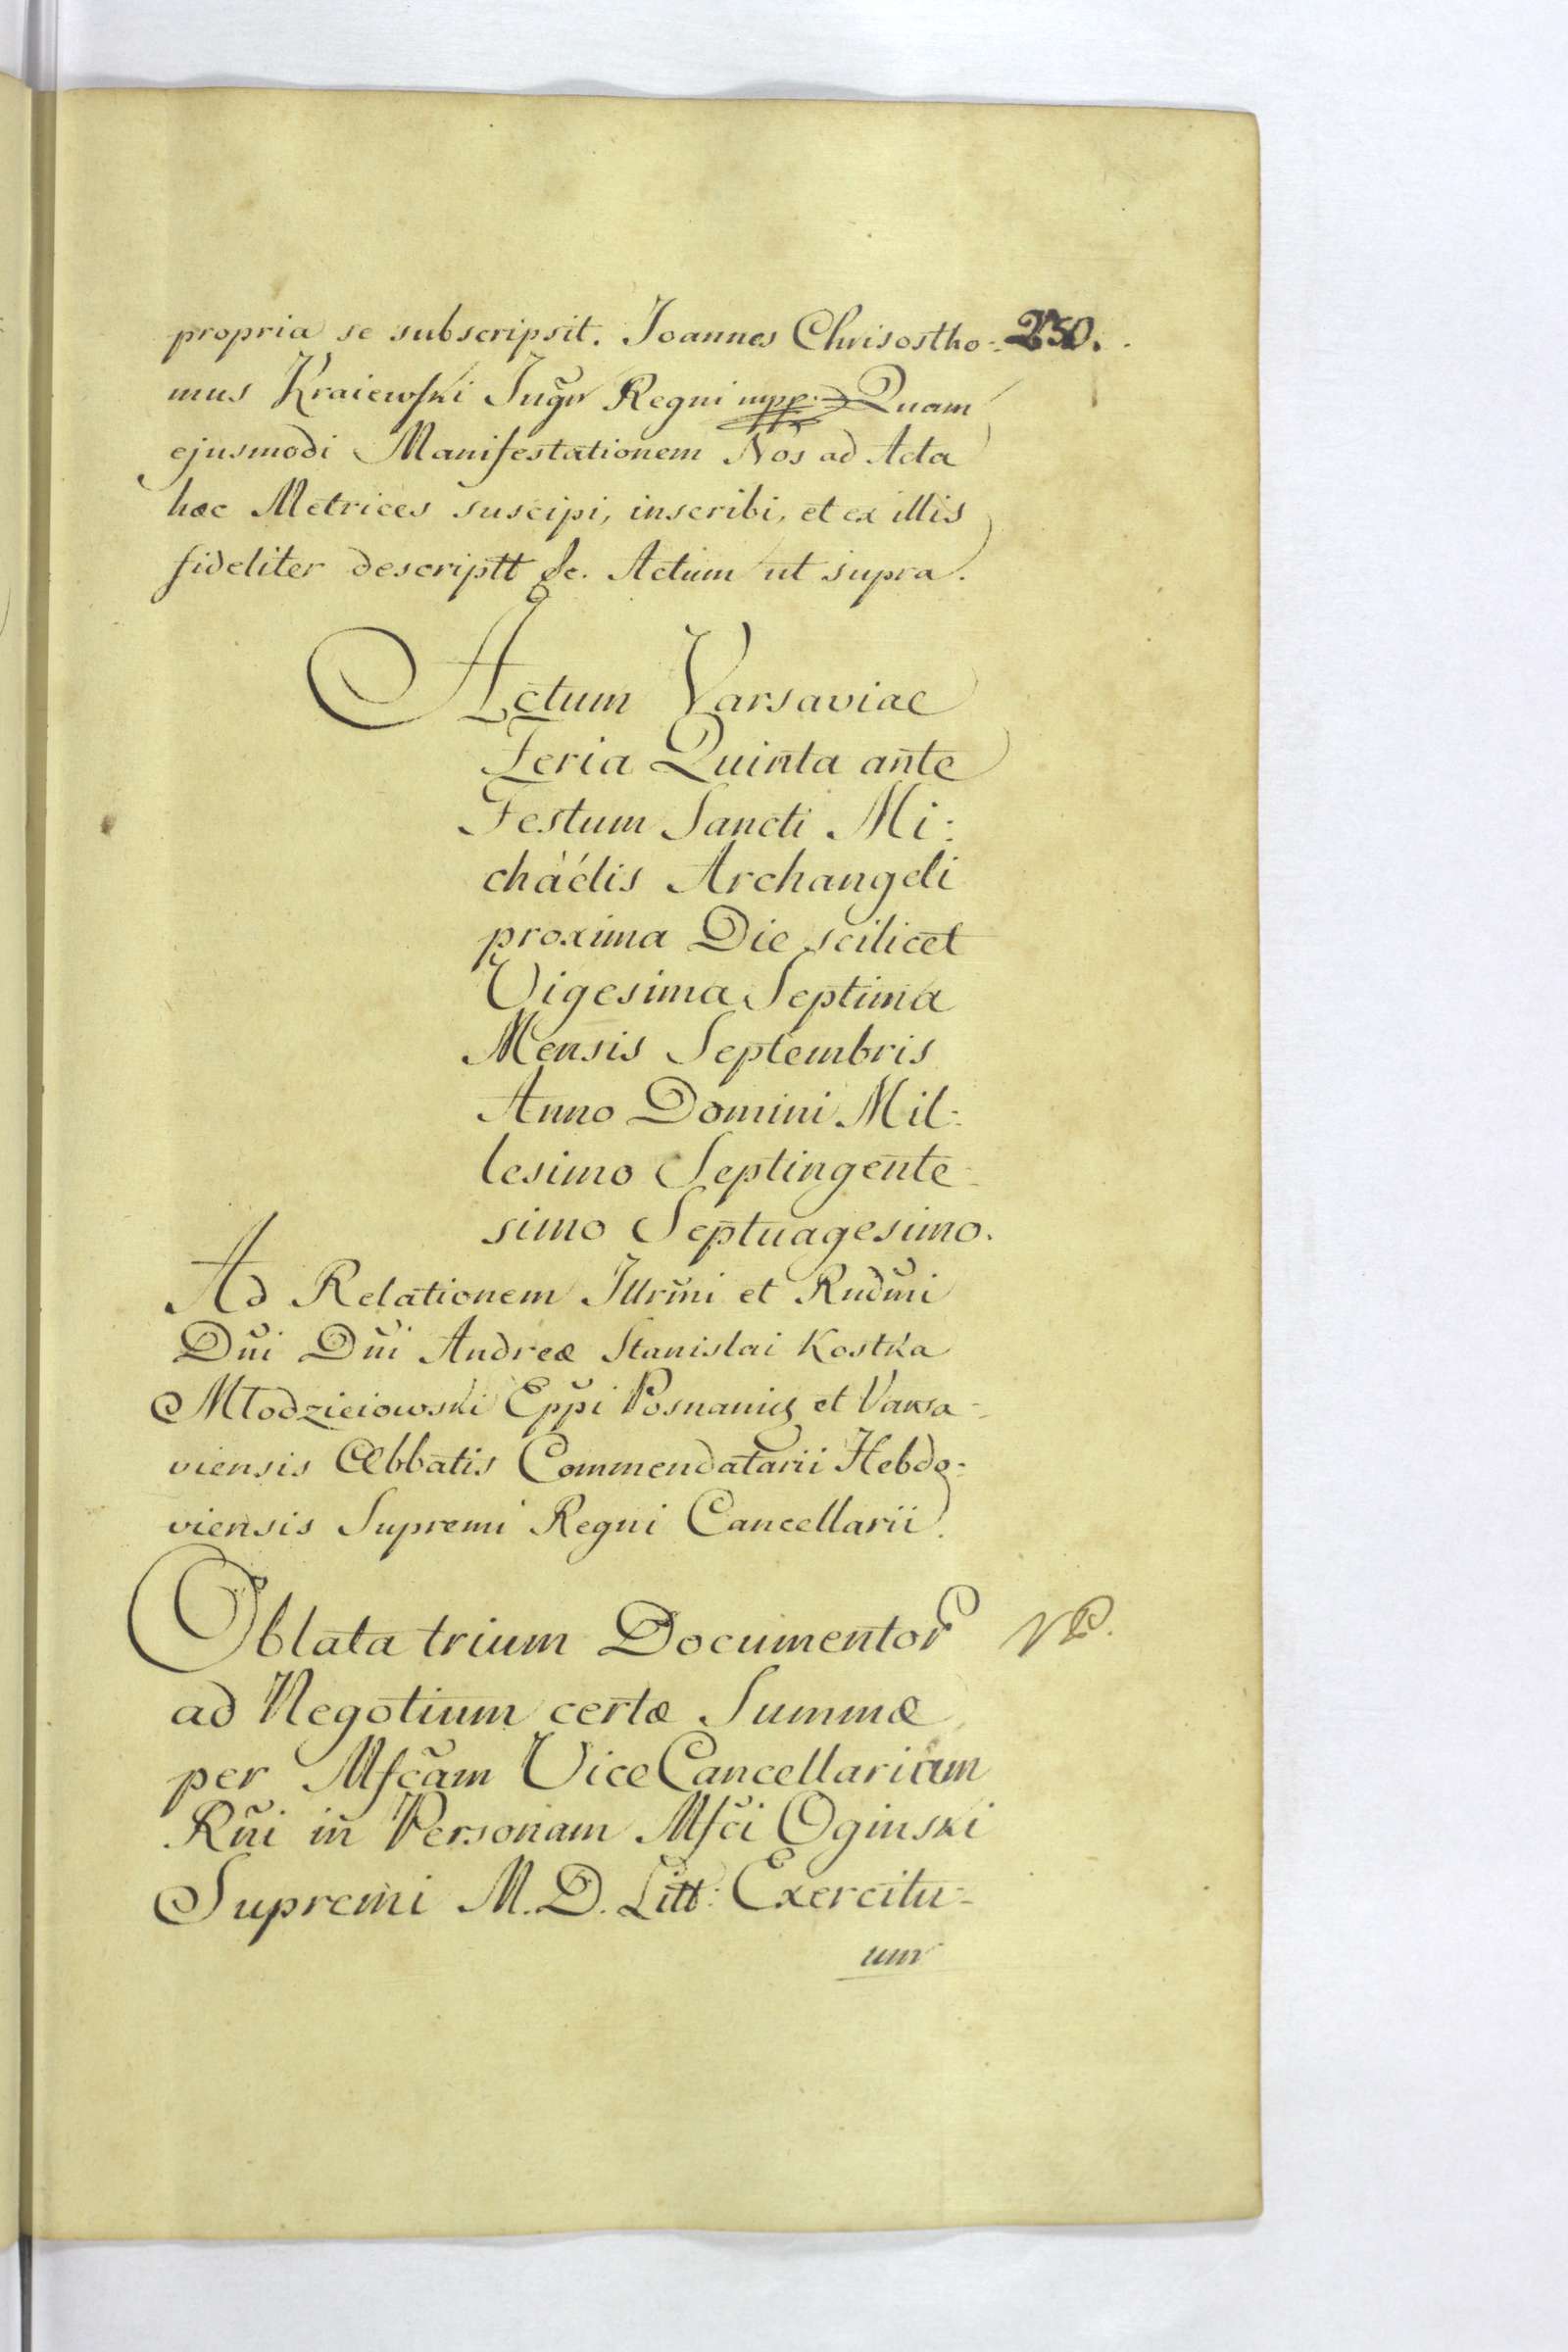 propria se subscripsit. Joannes Chrisostho= 250.
mus Kraiewski Jugr Regni mpp. Quam
ejusmodi Manifestationem Nos ad Acta
hæc Metrices suscipi, inscribi, et ex illis
fideliter descriptt &c. Actum ut supra.
Actum Varsaviae
Feria Quinta ante
Festum Sancti Mi:
chàélis Archangeli
proxima Die scilicet
Vigesima Septima
Mensis Septembris
Anno Domini Mil:
lesimo Septingente
simo Septuagesimo.
Ad Relationem Illrm̃i et Rndm̃i
Dñi Dñi Andreæ Stanislai Kostka
Młodzieiowski Epp̃i Posnanię et Varsa=
viensis Abbatis Commendatarii Hebdo=
viensis Supremi Regni Cancellarii.
Oblata trium Documentor
ad Negotium certæ Summæ
per Mfc̃am ViceCancellariam
Rñi in Personam Mfc̃i Oginski
Supremi M. D. Litt: Exercitu=
um